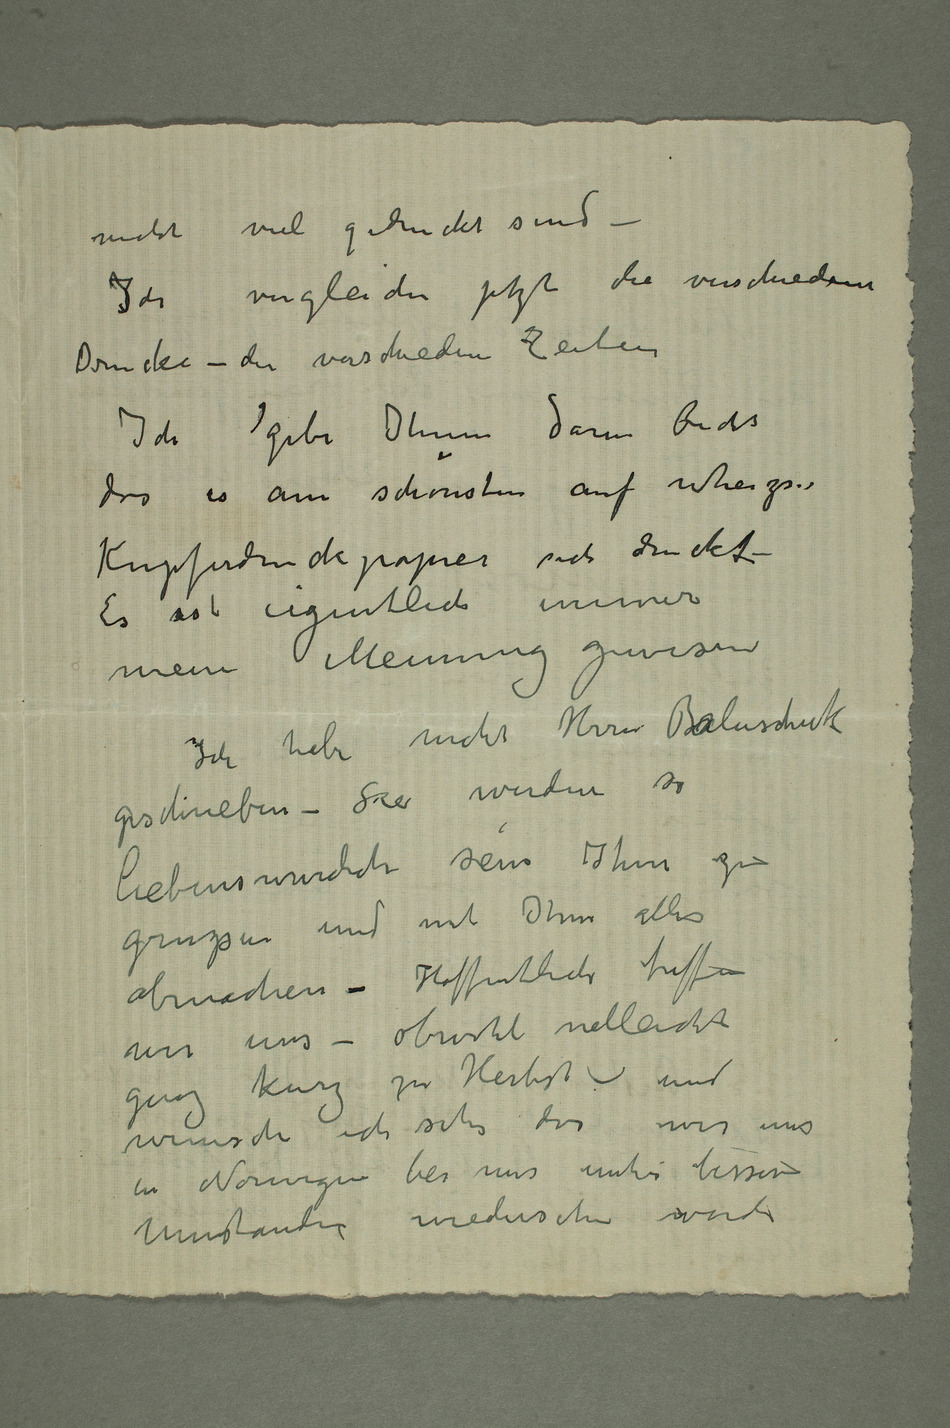 nicht viel gedruckt sind –
Ich vergleiche jetzt die verschiedene
Drucke – der verschiedene Zeiten
Ich gebe Ihnen darin Recht
das es am schönsten auf
Kupferdruckpapier sich druckt –
Es ist eigentlich immer
meine Meinung gewesen
Ich habe nicht Herrn Baluschek
geschrieben – Sie werden so
liebenswurdich sein Ihm zu
gruzsen und mit Ihm alles
abmachen – Hoffentlich treffen
wir uns – obwohl vielleicht
ganz kurz zu Herbst – und
wünsche ich sehr das wir uns
in Norwegen bei uns unter besseren
Umstande wiedersehen werde